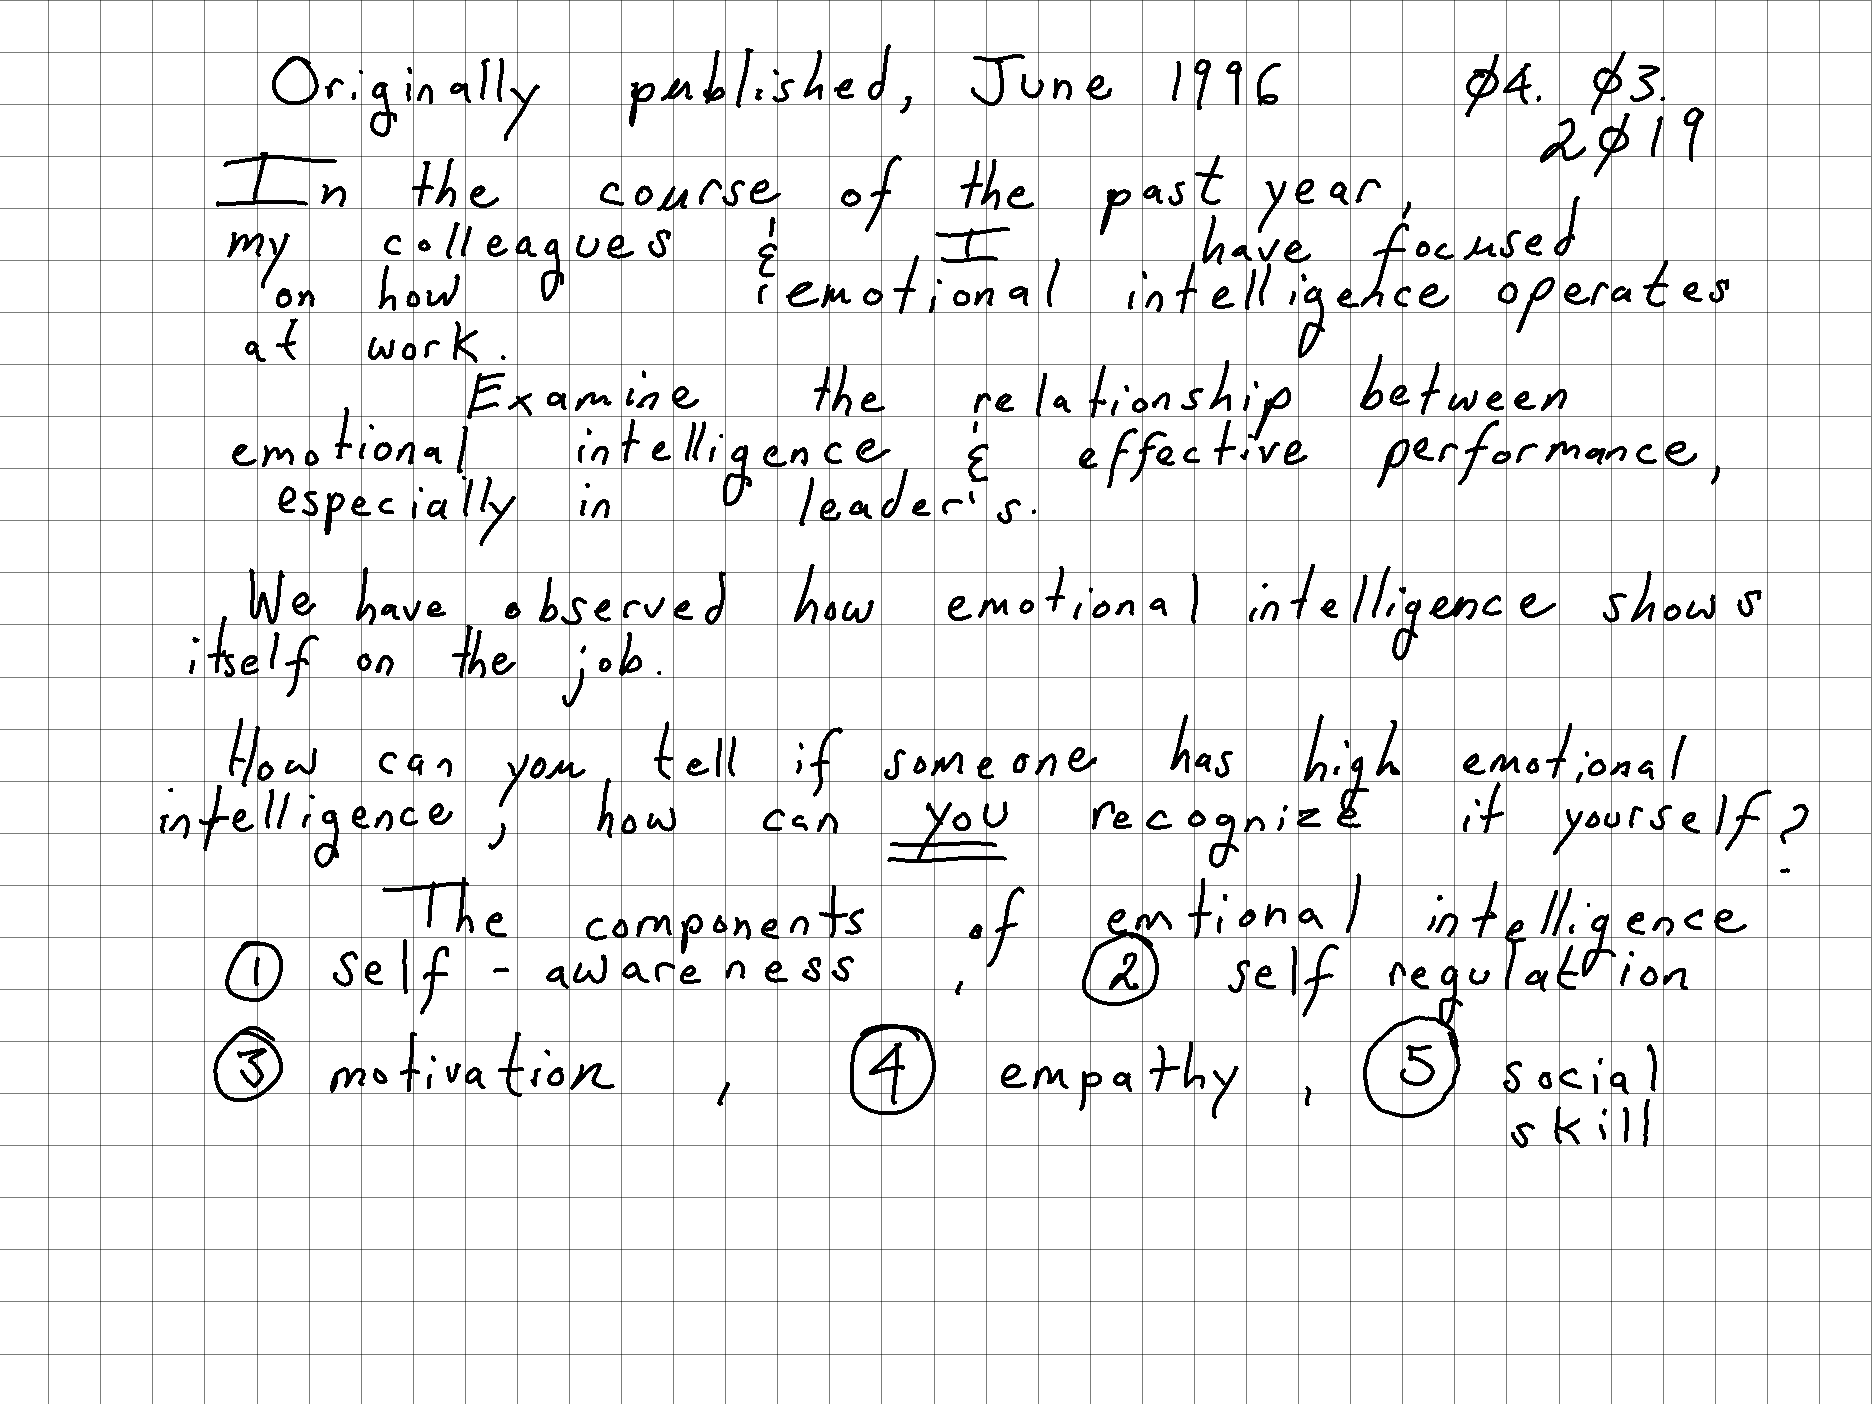 Originally published, June 1996 Ø4. Ø3.
2Ø19
In the course of the past year,
my colleagues & I have focused
on how emotional intelligence operates
at work.
Examine the relationship between
emotional intelligence & effective performance,
especially in leader's.
We have observed how emotional intelligence shows
itself on the job.
How can you tell if someone has high emotional
intelligence, how can you recognize it yourself?
The components of emtional intelligence
① self - awareness , ② self regulation
③ motivation , ④ empathy , ⑤ social
skill